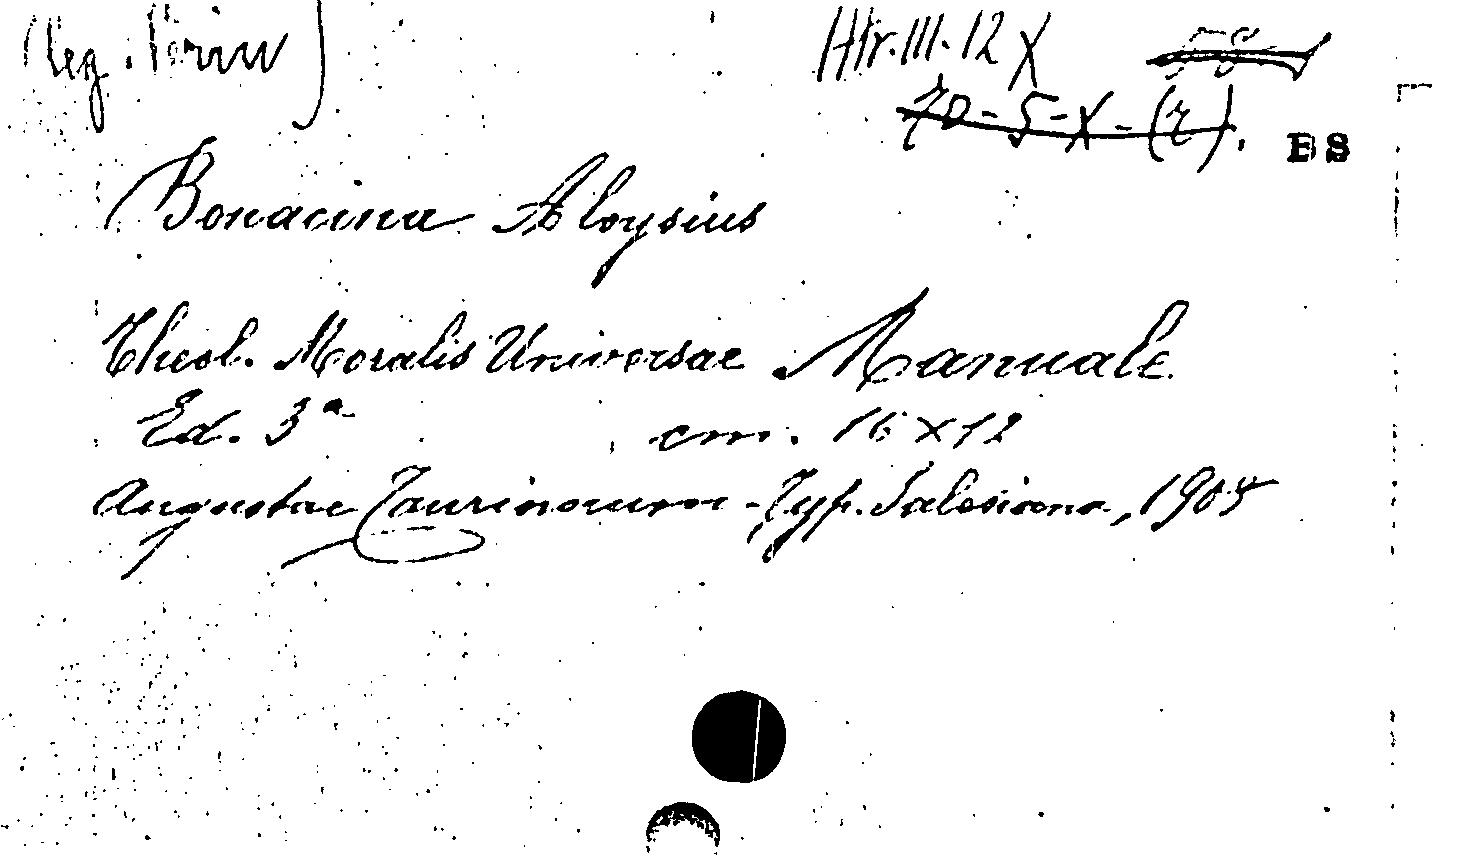 (leg. Perin)
Htr. III. 12 X
70 - 5 - X - (r).
BS
Bonacina Aloysius
Theol. Moralis Universae Manuale
Ed. 3ª cm. 16 x 12
Augustae Taurinorum - Typ. Salesiana, 1905